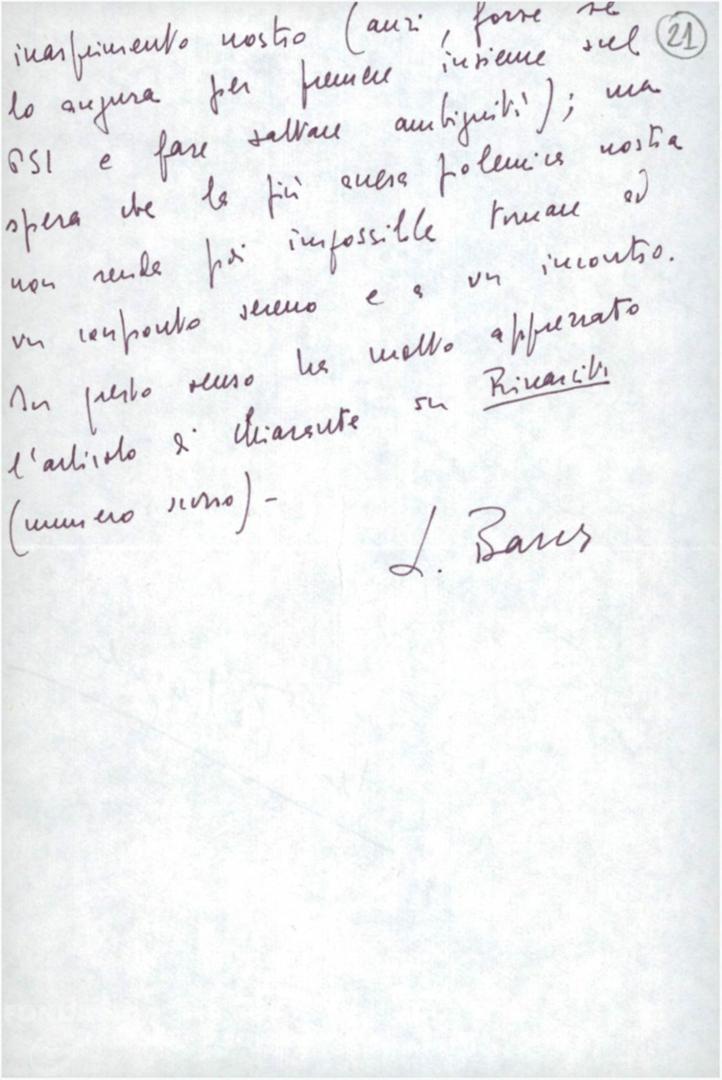 21
inasprimento nostro (anzi, forse se
lo augura per premere insieme sul
PSI e fare saltare ambiguità); ma
spera che la più accesa polemica nostra
non renda poi impossibile tornare ad
un confronto sereno e a un incontro.
In questo senso ha molto apprezzato
l'articolo di Chiarante su Rinascita
(numero scorso) -
L. Barca